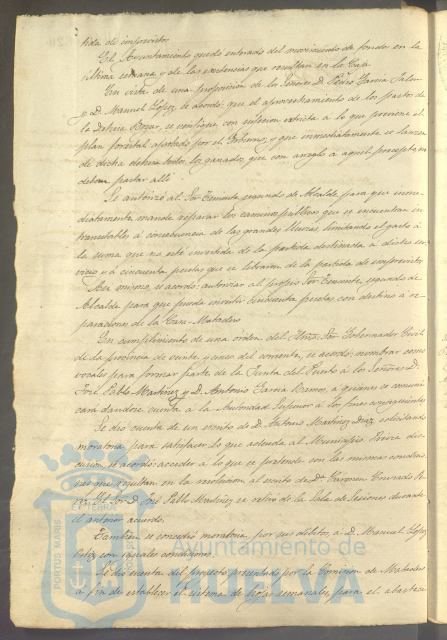 tida de imprevistos.
El Ayuntamiento quedó enterado del movimiento de fondos en la
última semana y de las existencias que resultan en la Caja.
En vista de una proposición de los Señores D. Pedro García
y D. Manuel López, se acordó: que el aprovechamiento de los pastos de
la Dehesa Boyar, se verifique con sujecion extricta a lo que previene el
plan forestal aprobado por el Gobierno, y que inmediatamente se lancen
de dicha dehesa todos los ganados, que con arreglo a aquel precepto, no
deban pastar alli
Se autorizó al Sor. Teniente segundo de Alcalde, para que inme-
diatamente mande reparar los caminos públicos que se encuentran in-
transitables á consecuencia de las grandes lluvias, limitando el gasto á
la suma que no esté invertida de la partida destinada á dicho ser-
vicio y á cincuenta pesetas que se librarán de la partida de imprevistos
Asi mismo, se acordó: autorizar al propio Sor. Teniente, segundo de
Alcalde para que pueda invertir cincuenta pesetas con destino á re-
paraciones de la Casa-Matadero
En cumplimiento de una orden del Iltmo. Sor. Gobernador Civil
de la provincia de veinte y cinco del corriente, se acordó: nombrar como
vocales para formar parte de la Junta del Puerto á los Señores D.
José Pablo Martinez y D. Antonio García Ramos, á quienes se comuni-
cará dandose cuenta a la Autoridad Superior á los fines consiguientes
Se dió cuenta de un escrito de D. Antonio Martinez Diaz solicitando
moratoria para satisfacer lo que adeuda al Municipio. Prévia dis-
cusion se acordó: acceder a lo que se pretende con las mismas condicio-
nes que resultan en la resolucion al escrito de D.
El Sor. D. José Pablo Martinez se retiró de la Sala de Sesiones durante
el anterior acuerdo.
Tambien se concedió moratoria por sus débitos, á D. Manuel López
con iguales condiciones.
Se dió cuenta del proyecto presentado por la Comision de Matadero
a fin de establecer el sistema de semanales, para el abasteci-
PORTUS MARIS ET TERRAE
Ayuntamiento de
HUELVA